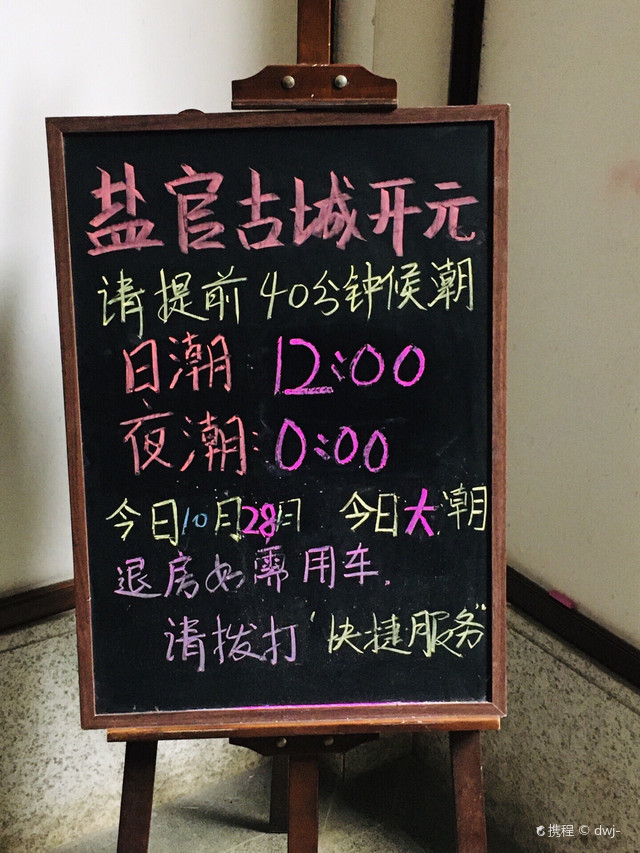 盐官古城开元
请提前40分钟候潮
日潮 12:00
夜潮: 0:00
今日10月28日 今日大潮
退房如需用车.
请拨打"快捷服务"
携程 © dwj-